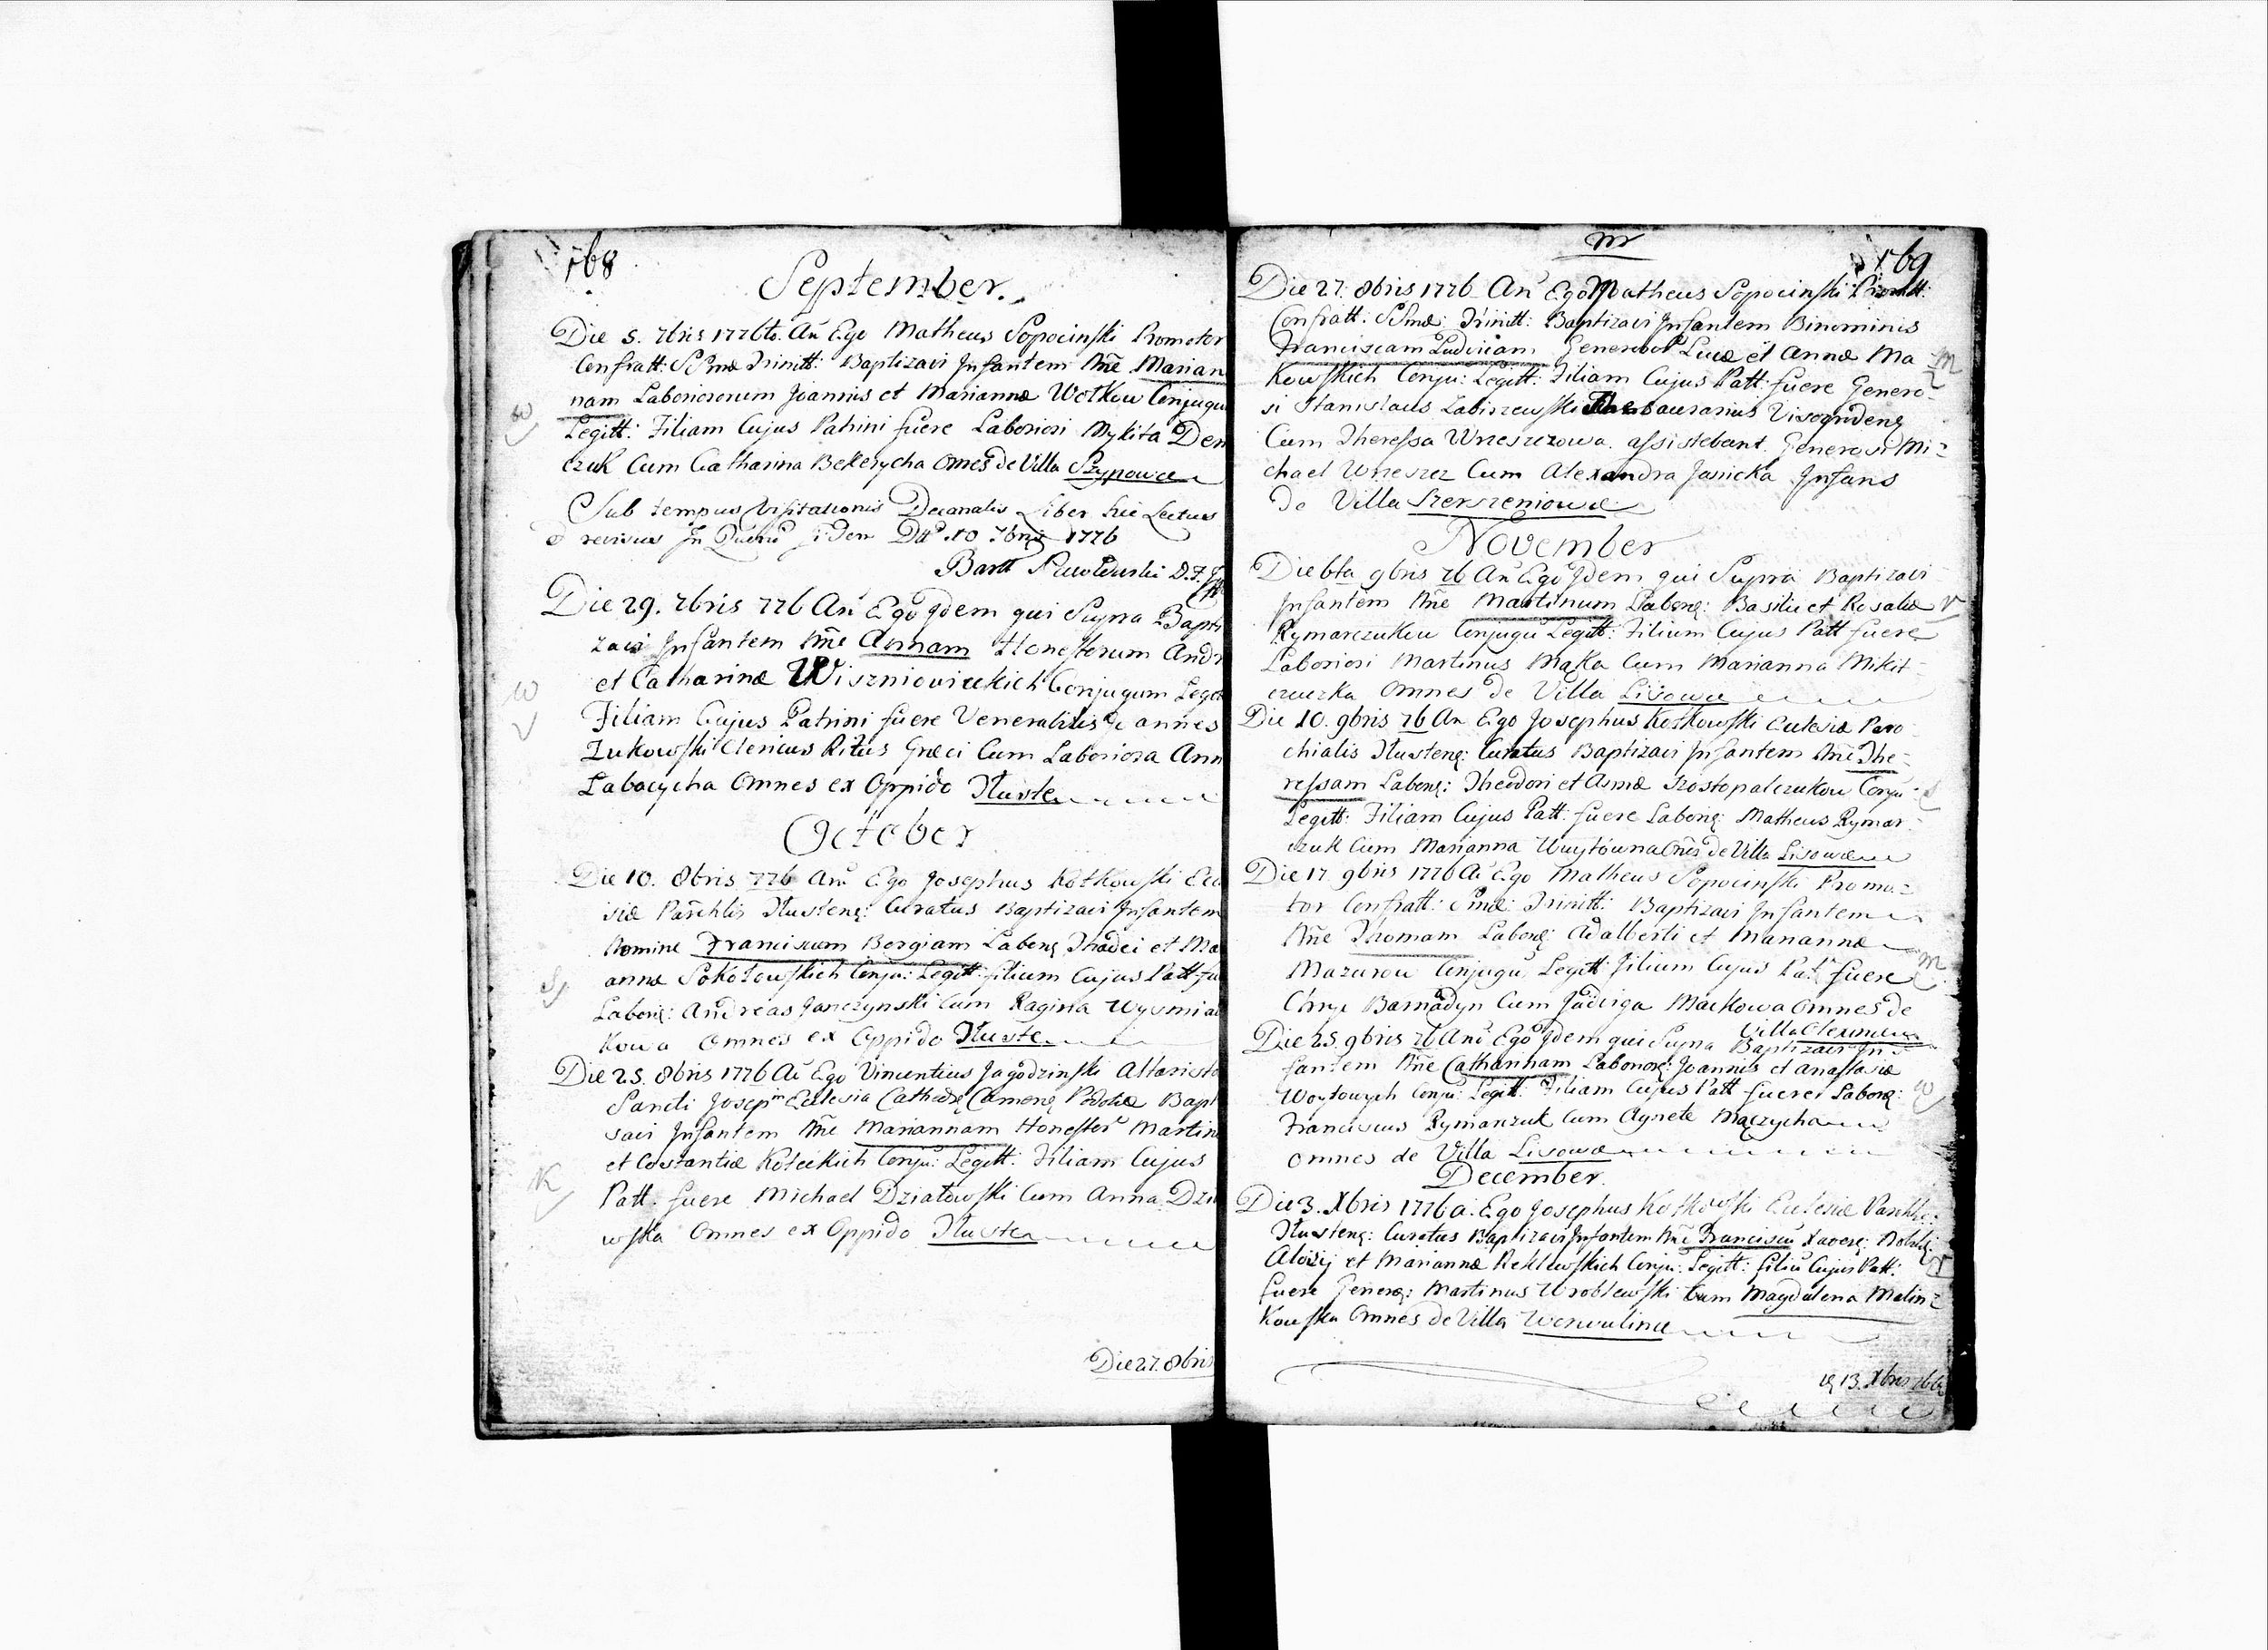 168
September.
Die 5. 7bris 1776to. An Ego Matheus Sopocinski Promotor
Confratt: SSmæ Trinitt: Baptizavi Infantem Nñe Marian
nam Laboriosorum Joannis et Mariannæ Wotkow Conjugu
Legitt: Filiam Cujus Patrini fuere Laboriosi Mykita Dem
czuk Cum Catharina Bekerycha Omes de Villa Szypowce
Sub tempus Visitationis Decanalis Liber hic Lectus
revisus
10 7bris 1776
Bart
Die 29. 7bris 776 An Ego Idem qui Supra Bapti
zavi Infantem Nñe Annam Honestorum Andr
et Catharinæ Wiszniowieckich Conjugum Legit
Filiam Cujus Patrini fuere Venerabilis Joannes
Zukowski Clericus Ritus Græci Cum Laboriosa Ann
Labacycha Omnes ex Oppido Tłuste
October
Die 10. 8bris 776 An Ego Josephus Kotkowski Eccle
siæ Parchlis Tłustenę: Curatus Baptizavi Infantem
Nomine Franciscum Borgiam Laborę Thadei et Ma
annæ Sokołowskich Conju: Legitt: filium Cujus Patt fu
Laborię: Andreas Janczynski Cum Ragina Wysmia
kowa Omnes ex Oppido Tłuste
Die 25. 8bris 1776 An Ego Vincentius Jagodzinski Altarista
Sancti Joseph Ecclesia Cathedrę Camenę Podoliæ Bapt
savi Infantem Nñe Mariannam Honestor Martini
et Costantiæ Koteckich Conju: Legitt: Filiam Cujus
Patt: fuere Michael Działowski Cum Anna Dzia
wska Omnes ex Oppido Tłuste
Die 27. 8bris
169
Die 27. 8bris 1776 An Ego Matheus Sopocinski Promott:
Confratt: SSmæ: Trinitt: Baptizavi Infantem Binominis
Franciscam Ludvicam Generos Lucæ et Annæ Ma
kowskich Conju: Legitt: Filiam Cujus Patt: fuere Genero
si Stanislaus Zabiszewski Thesaurarius
Cum Theressa Wrzeszczowa. assistebant. Generosi Mi
chael Wrzeszcz Cum Alexandra Janicka Infans
De Villa Szerszeniowce
November
Die 6ta 9bris 76 An Ego Idem qui Supra Baptizavi
Infantem Nñe Martinum Laborę: Basilii et Rosaliæ
Rymarczukow Conjugu Legitt: Filium Cujus Patt fuere
Laboriosi Martinus Mąka Cum Marianna Mikit
czuczka Omnes de Villa Lisowce
Die 10. 9bris 76 An Ego Josephus Kotkowski Eclesiæ Paro
chialis Tłustenę: Curatus Baptizavi Infantem Nñe The
ressam Laborę: Theodori et Asmæ Szostopalczukow Conju
Legitt: Filiam Cujus Patt: fuere Laborię Matheus Rymar
czuk Cum Marjanna Wuytowna Omes de Villa Lisowce
Die 17. 9bris 1776 A Ego Matheus Sopocinski Promo
tor Confratt: Smæ: Trinitt: Baptizavi Infantem
Nñe Thomam Laborę: Adalberti et Mariannæ
Mazurow Conjugu Legitt Filium Cujus Patt fuere
Barnadyn Cum Jadwiga Maćkowa Omnes de
Villa
Die 25. 9bris 76 Ano Ego Idem qui Supra Baptizavi In
fantem Nñe Catharinam Laboriorę: Joannis et Anastasiæ
Woytowych Conju: Legitt: Filiam Cujus Patt fuere Laborę:
Franciscus Rymarczuk Cum Agnete Mączycha
Omnes de Villa Lisowce
December.
Die 3. Xbris 1776 a. Ego Josephus Kotkowski Ecclesiæ Parchlis
Tłustenę: Curatus Baptizavi Infantem Nñe Franciscu Xaverę: Nobilię
Aloisij et Mariannæ Reklewskich Conju: Legitt: filiu Cujus Patt:
fuere Generę: Martinus Wroblewski Cum Magdalena Malin
kowska Omnes de Villa Worwulince
13. Xbris